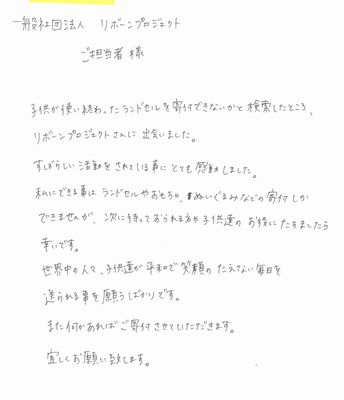 一般社団法人 リボーンプロジェクト
ご担当者 様
子供が使い終わったランドセルを寄付できないかと検索したところ、
リボーンプロジェクトさんに出会いました。
すばらしい活動をされている事にとても感動しました。
私にできる事はランドセルやおもちゃ、ぬいぐるみなどの寄付しか
できませんが、次に待っておられる方や子供達のお役にたちましたら
幸いです。
世界中の人々、子供達が平和で笑顔のたえない毎日を
送られる事を願うばかりです。
また何かあればご寄付させていただきます。
宜しくお願い致します。